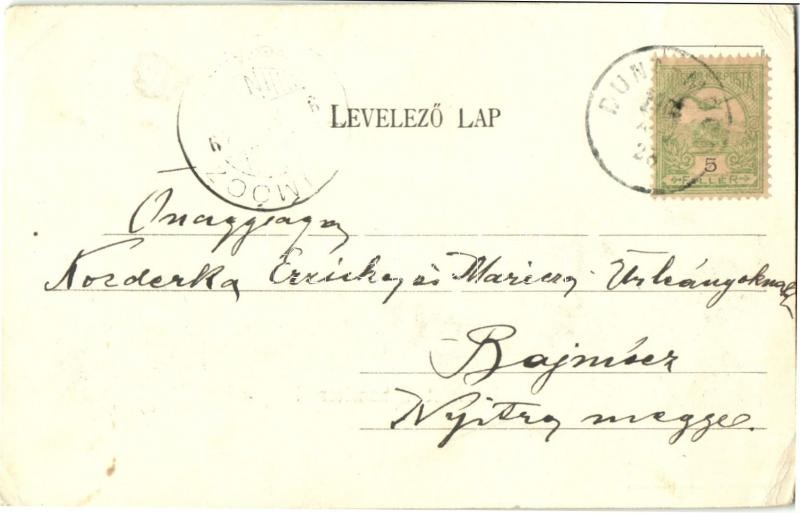 LEVELEZŐ LAP
DUN
MAGYAR KIR. POSTA
5
FILLÉR
Önagysága
Kozderka Erzsike és Maricza Urleányoknak
Bajmócz
Nyitra megye.